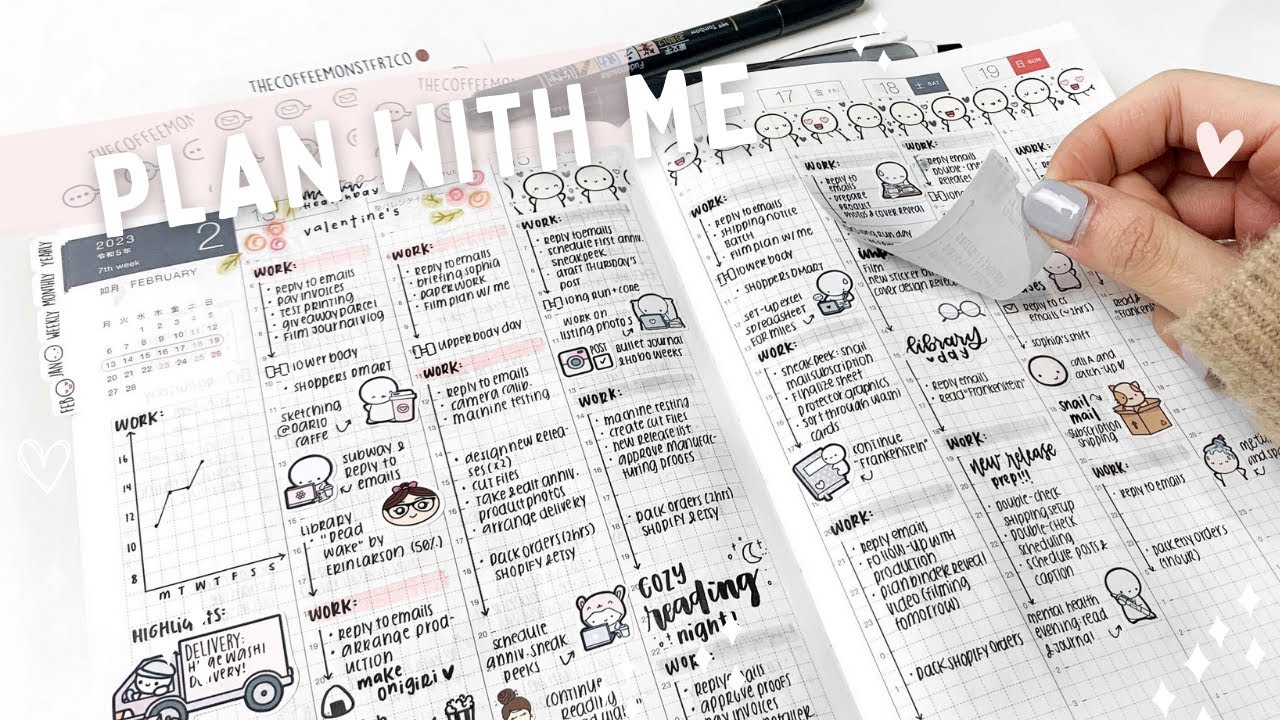 THECOFFEEMONSTERZCO
THECOFFEEMONSTERZCO
THECOFFEEMON
PLAN WITH ME
Tombow
2023
令和5年
7th week
2
如月 FEBRUARY
月 火 水 木 金 土 日
1 2 3 4 5
6 7 8 9 10 11 12
13 14 15 16 17 18 19
20 21 22 23 24 25 26
27 28
YEARLY
MONTHLY
WEEKLY
JAN
FEB
WORK:
16
14
12
10
8
M T W T F S S
DELIVERY:
WASHI
DELIVERY!
13
WORK:
• Reply to emails
• pay invoices
• test printing
• giveaway parcel
• film journal vlog
lower body
• shoppers DMART
sketching
@DARIO
CAFFE
subway &
reply to
emails
LIBRARY
• "Dead
wake" by
ERIN LARSON (50%)
WORK:
• Reply to emails
• arrange prod-
uction
make
onigiri
valentine's
WORK:
• Reply to emails
• briefing sophia
• paperwork
• film plan w/ me
upper body day
WORK:
• Reply to emails
• camera calib.
• machine testing
• design new relea-
ses (x2)
• cut files
• take & edit anniv.
product photos
• arrange delivery
• pack orders (2hrs)
SHOPIFY & ETSY
schedule
anniv. sneak
peeks
continue
WORK:
• Reply to emails
• schedule first anniv.
sneak peek
• draft thursday's
post
long run + core
WORK on
listing photos
POST
Bullet journal
& hobo weeks
WORK:
• machine testing
• create cut files
• new release list
• approve manufac-
turing proofs
• pack orders (2hrs)
SHOPIFY & ETSY
COZY
reading
night!
WORK:
• Reply emails
• approve proofs
• pay invoices
WORK:
• Reply to emails
• shipping notice
batch
• film plan w/ me
lower body
• shoppers DMART
• set-up excel
spreadsheet
for miles
WORK:
• sneak peek: snail
mail subscription
• finalize sheet
protector graphics
• sort through washi
cards
continue
"Frankenstein"
WORK:
• Reply emails
• follow-up with
production
• plan binder reveal
video (filming
tomorrow)
• pack shopify orders
17 金 FRI
WORK:
• Reply to
emails
• prepare
product
photos & cover reveal
film
new sticker
cover design reveal
library
day
• Reply emails
• Read "Frankenstein"
WORK:
new release
prep!!!
• double-check
shipping setup
• double-check
scheduling
• schedule posts &
caption
mental health
evening: read
& journal
18 土 SAT
WORK:
• Reply emails
• double-check
Reply to cs
emails (~2hrs)
• sophia's shift
call A and
catch-up
snail
mail
subscription
shipping
WORK:
• Reply to emails
• pack etsy orders
(1 hour)
19 日 SUN
WORK:
• Read
"Frankenstein"